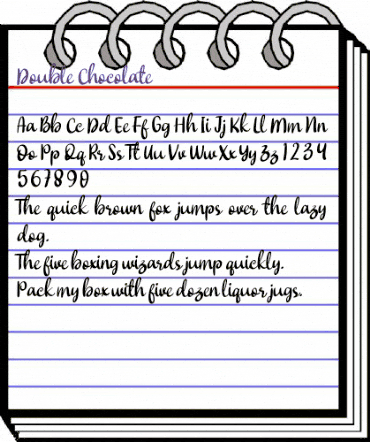 Double Chocolate
Aa Bb Cc Dd Ee Ff Gg Hh Ii Jj Kk Ll Mm Nn
Oo Pp Qq Rr Ss Tt Uu Vv Ww Xx Yy Zz 1 2 3 4
5 6 7 8 9 0
The quick brown fox jumps over the lazy
dog.
The five boxing wizards jump quickly.
Pack my box with five dozen liquor jugs.